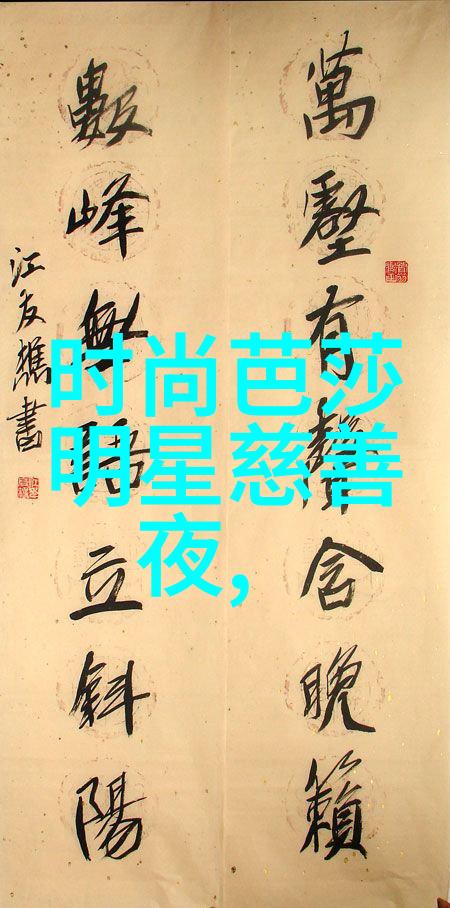 萬壑有聲含晚籟
數峰無語立斜陽
江友樵書
时尚芭莎
明星慈善
夜,